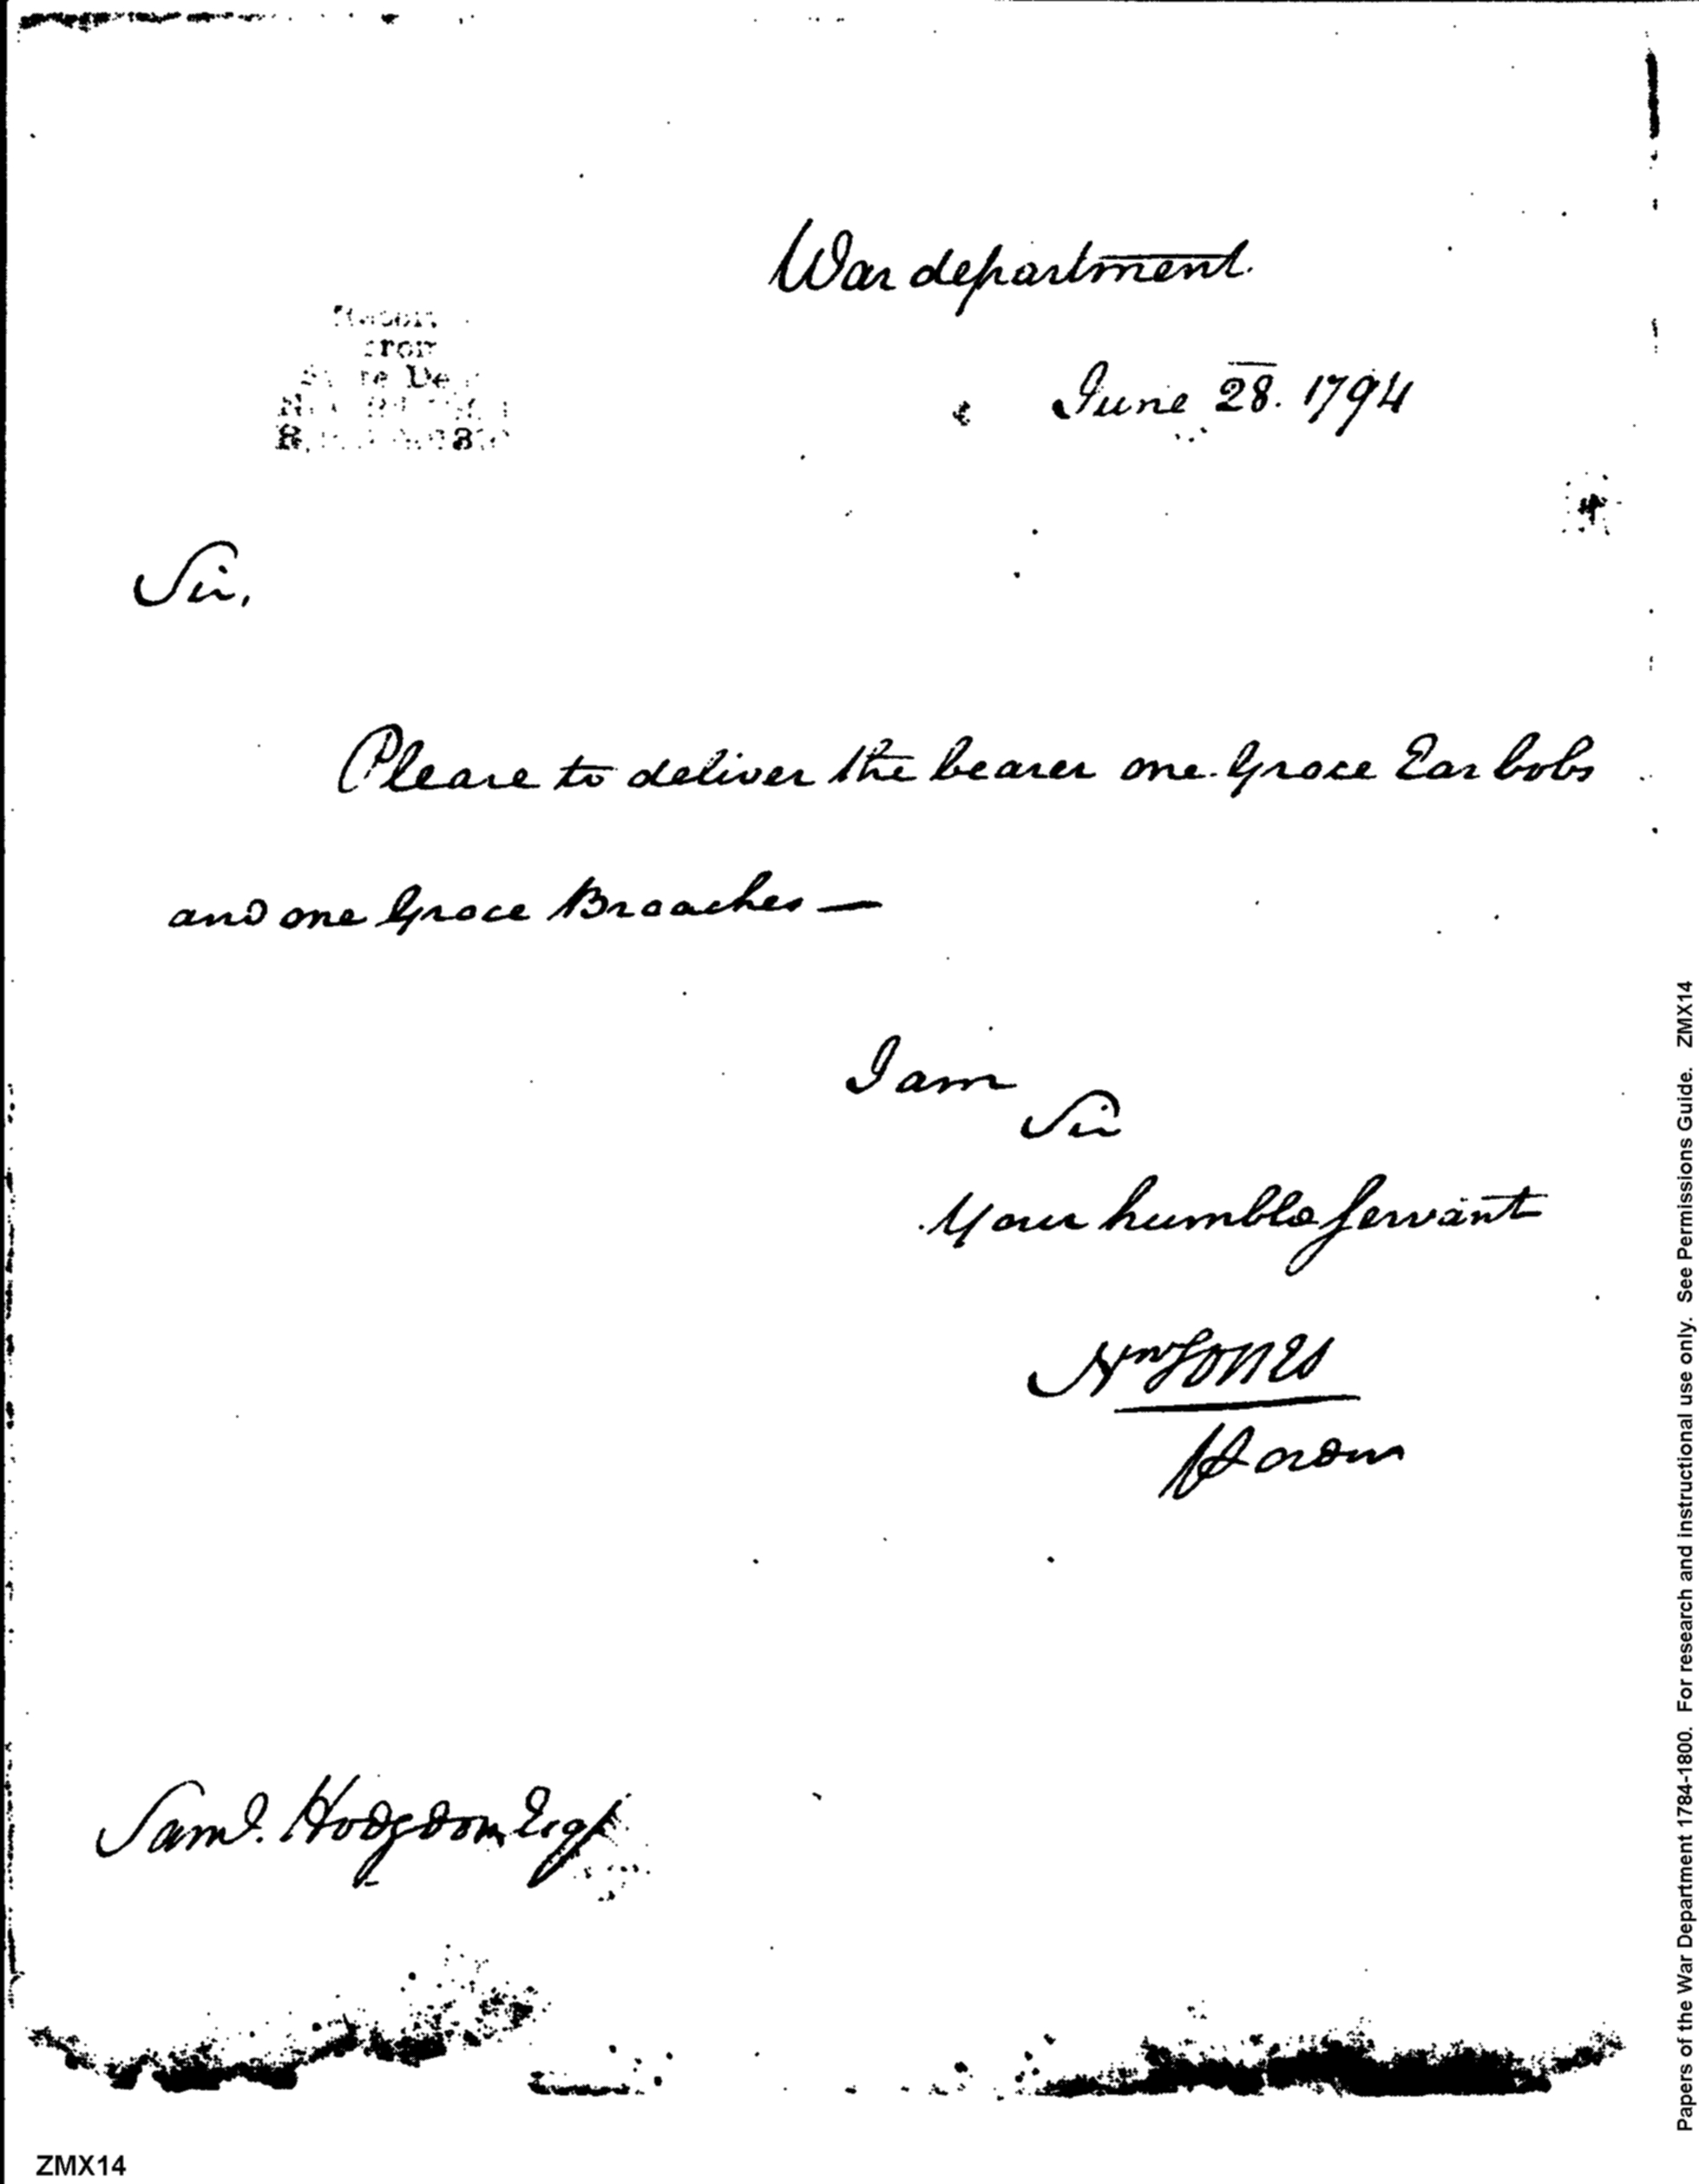 War department
June 28. 1794
from
Sir,
Please to deliver the bearer one Groce Ear bobs
and one Groce Broaches —
I am
Sir
Your humble servant
Saml. Hodgdon Esqr
Papers of the War Department 1784-1800. For research and instructional use only. See Permissions Guide. ZMX14
ZMX14